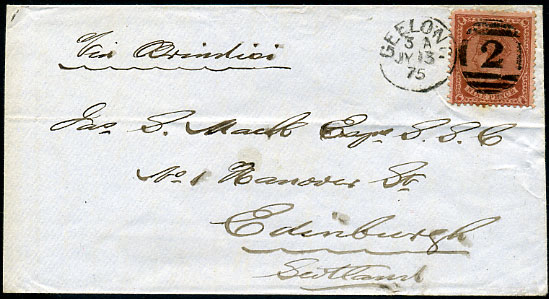 Via Brindisi
GEELONG
3 A
JY 13
75
2
NINEPENCE
Jas S. Mack Esqr S.S.C
No 1 Hanover St.
Edinburgh
Scotland